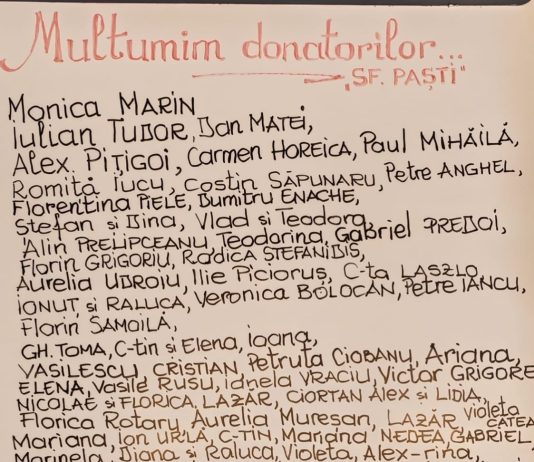 Multumim donatorilor...
„SF. PAȘTI"
Monica MARIN
Iulian TUDOR, Dan MATEI,
Alex. PIȚIGOI, Carmen HOREICA, Paul MIHĂILĂ,
Romită Țucu, Costin SĂPUNARU, Petre ANGHEL,
Florentina PIELE, Dumitru ENACHE,
Ștefan și Dina, Vlad și Teodora
Alin PRELIPCEANU, Teodorina, Gabriel PREDOI,
Florin GRIGORIU, Rodica ȘTEFANIDIS,
Aurelia UDROIU, Ilie Piciorus, C-ta LASZLO
IONUȚ și RALUCA, Veronica BOLOCAN, Petre IANCU,
Florin SAMOILĂ,
GH. TOMA, C-tin și Elena, ioana,
VASILESCU, CRISTIAN, Petruța CIOBANU, Ariana,
ELENA, Vasile RUSU, Ionela VRACIU, Victor GRIGORE
NICOLAE și FLORICA, LAZĂR, CIORTAN Alex și LIDIA,
Florica Rotaru, Aurelia Mureșan, LAZĂR, Violeta CATEA
Mariana, ion URLĂ, C-TIN, Mariana NEDEA, GABRIEL
Marinela, Diana și Raluca, Violeta, Alex-rina,